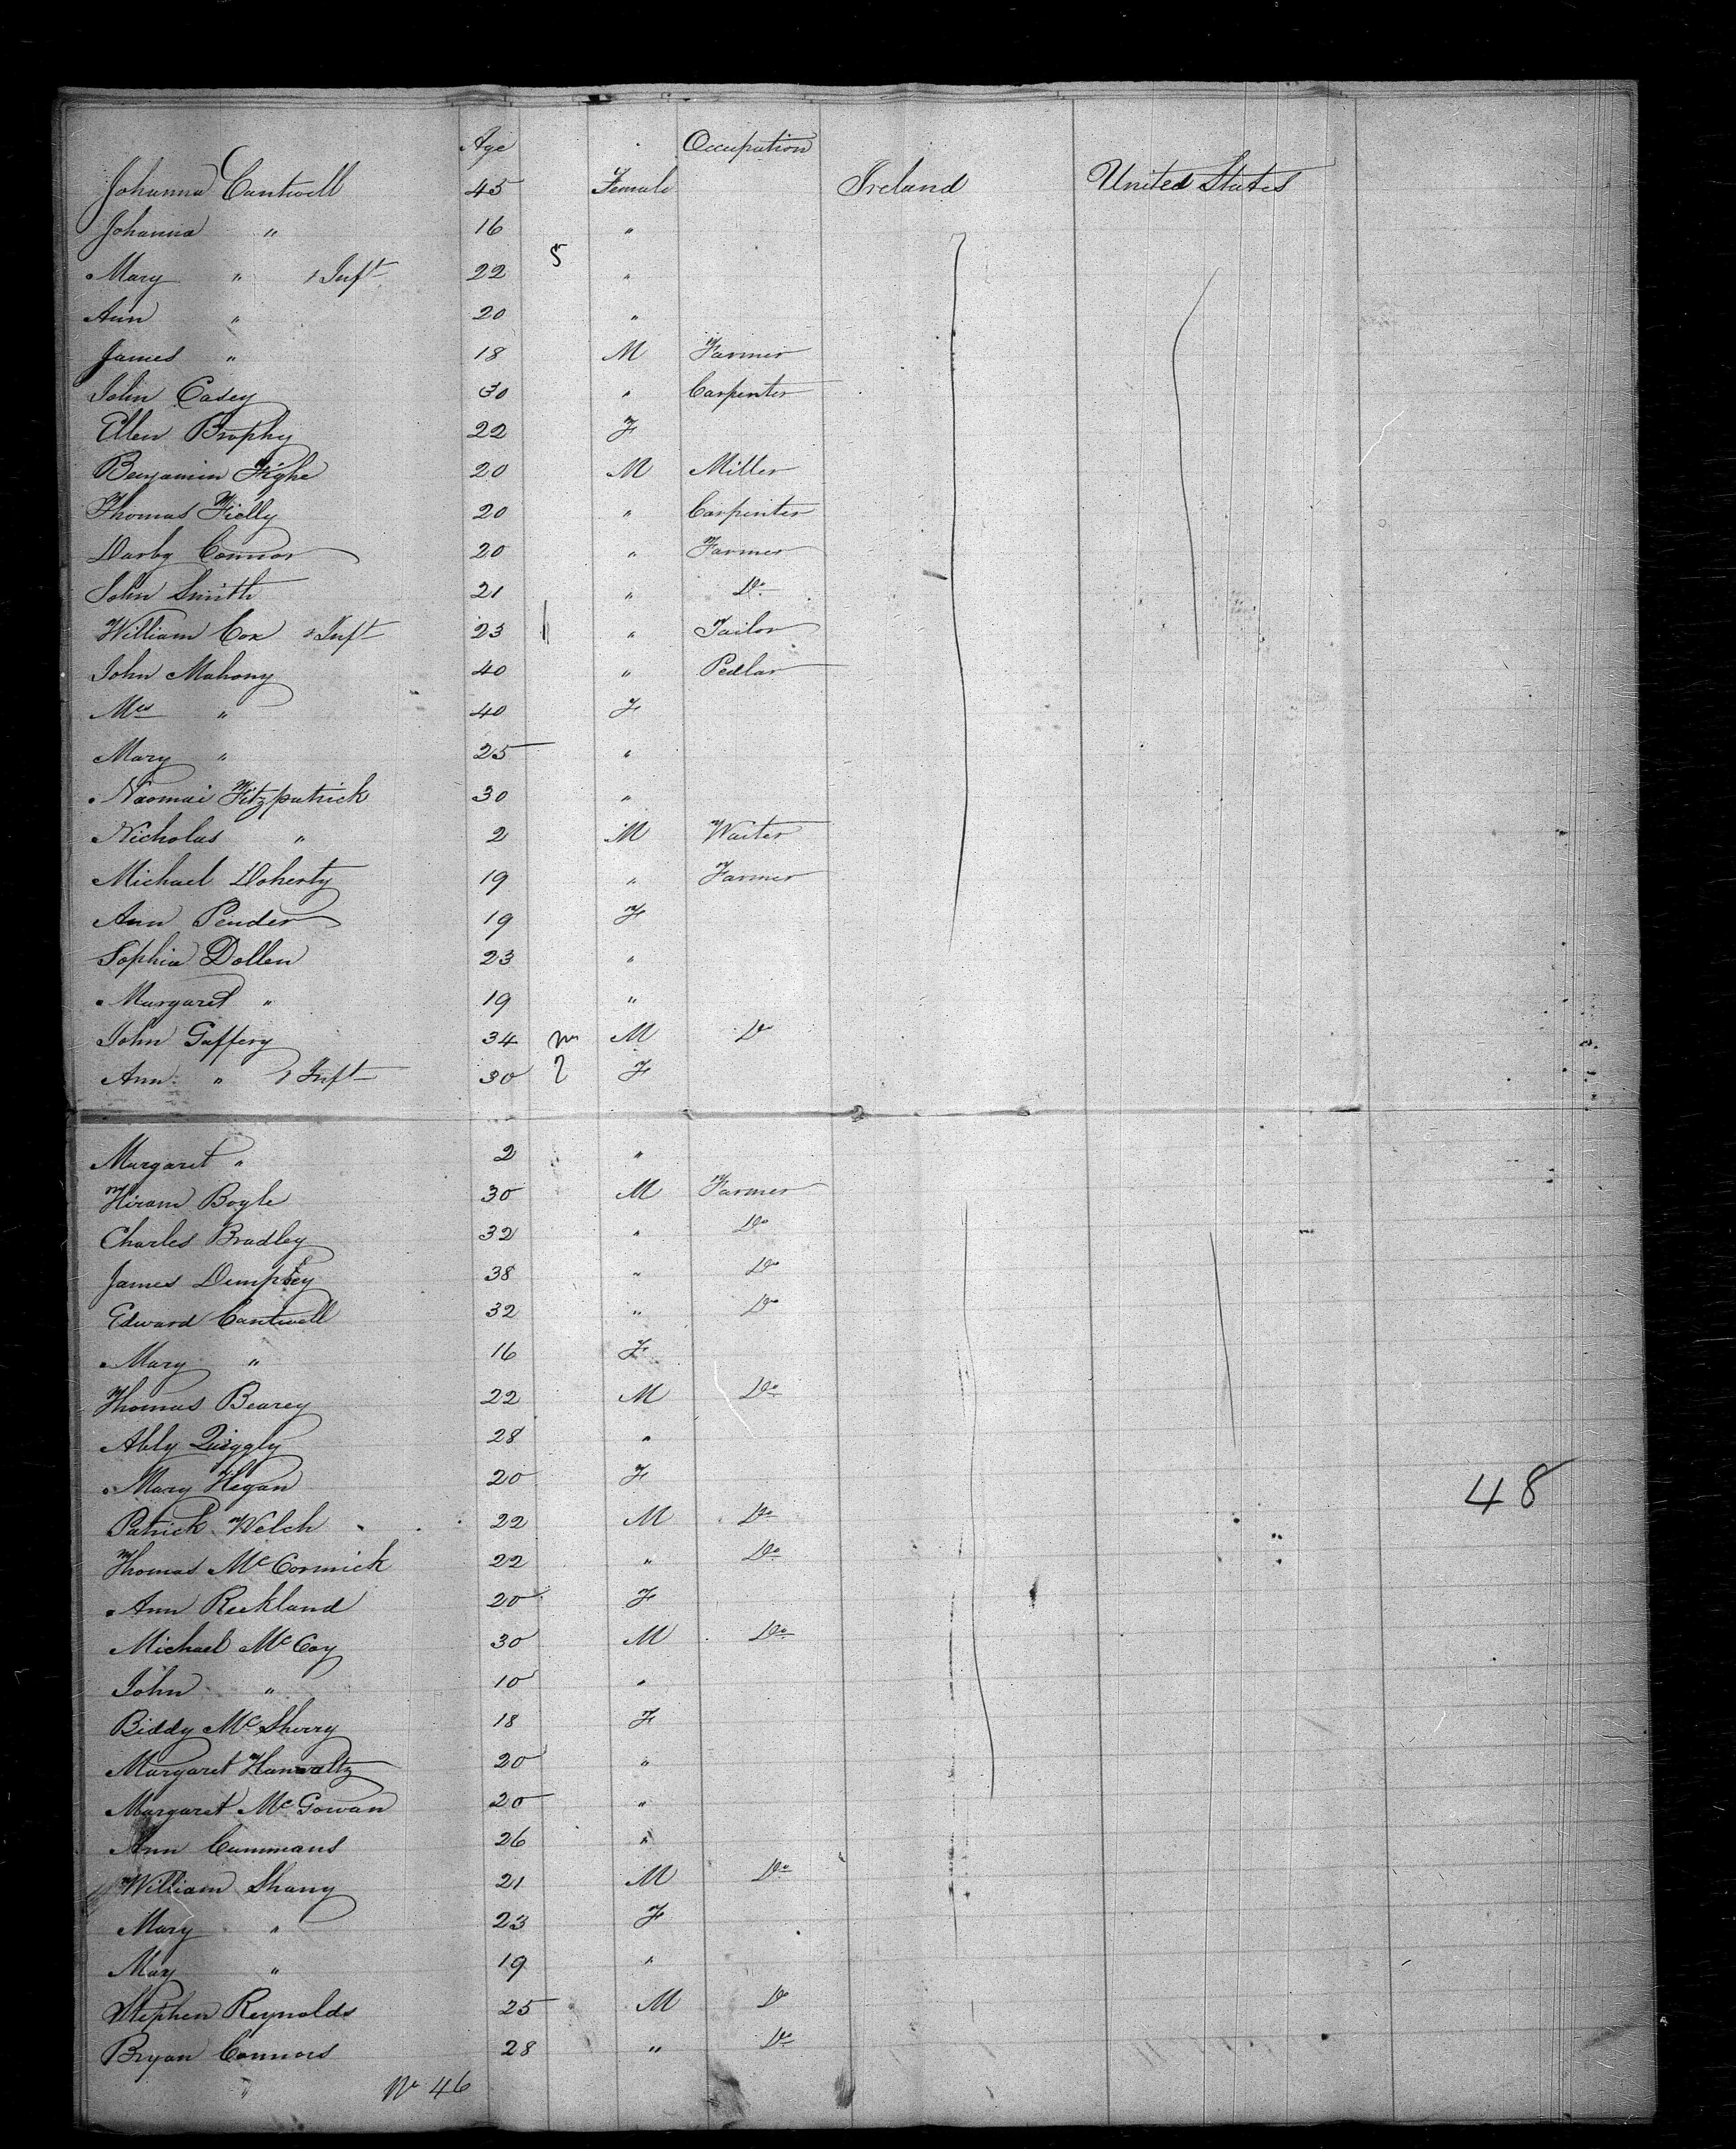 Age Occupation
Johanna Cantwell 45 Female Ireland United States
Johanna " 16 "
5
Mary " 1 Inft 22 "
Ann " 20 "
James " 18 M Farmer
John Casey 30 " Carpenter
Ellen Brophy 22 F
Benjamin Tighe 20 M Miller
Thomas Fielly 20 " Carpenter
Darby Connor 20 " Farmer
John Smith 21 " Do
William Cox Inft 23 " Tailor
John Mahony 40 " Pedlar
Mrs " 40 F
Mary " 25 "
Naomai Fitzpatrick 30 "
Nicholas " 2 M Waiter
Michael Doherty 19 " Farmer
Ann Pender 19 F
Sophia Dollen 23 "
Margaret " 19 "
John Gaffery 34 M Do
Ann " 1 Inft 30 2 F
Margaret " 2 "
Hiram Boyle 30 M Farmer
Charles Bradley 32 " Do
James Dempsey 38 " Do
Edward Cantwell 32 " Do
Mary " 16 F
Thomas Bearey 22 M Do
Ably Quiggly 28 "
Mary Hegan 20 F
48
Patrick Welch 22 M Do
Thomas McCormick 22 " Do
Ann Reckland 20 F
Michael McCoy 30 M Do
John " 10 "
Biddy McSherry 18 F
Margaret Hanwaltz 20 "
Margaret McGowan 20 "
Ann Cummans 26 "
William Shany 21 M Do
Mary " 23 F
May " 19 "
Stephen Reynolds 25 M Do
Bryan Connors 28 " Do
" No 46